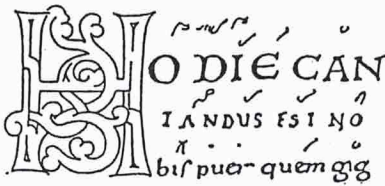 HODIE CAN
TANDUS EST NO
bis puer quem gig